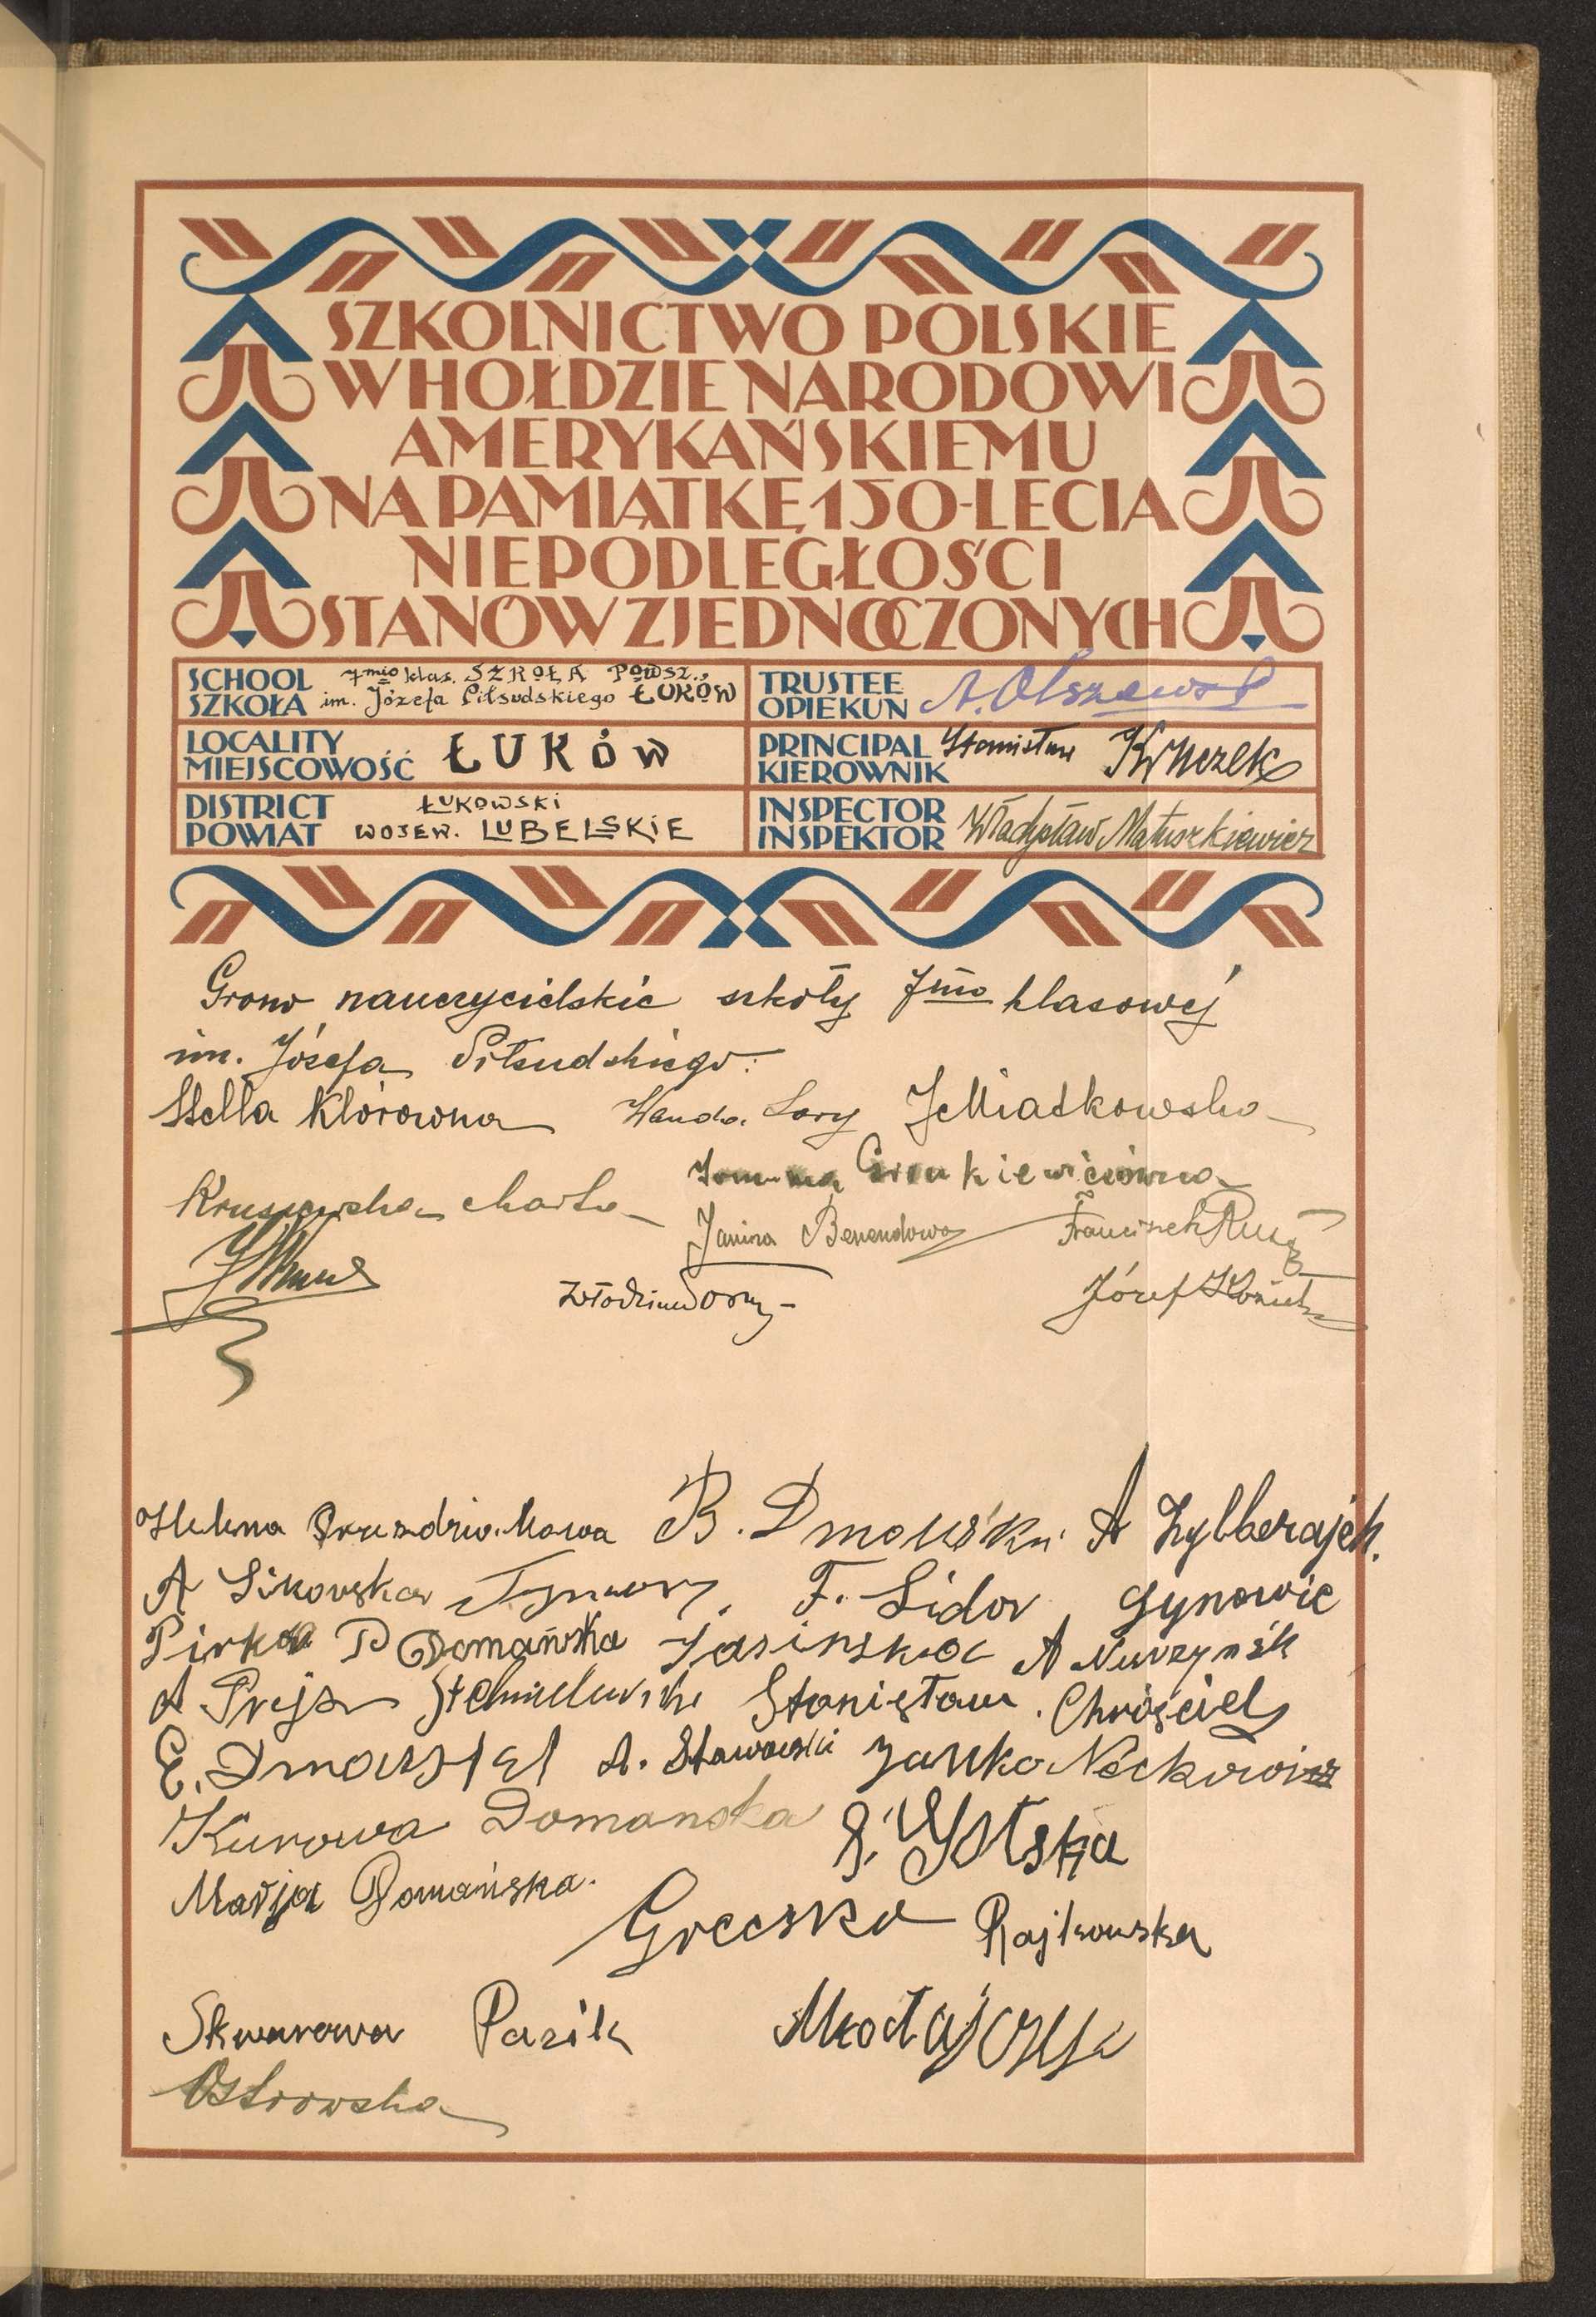 SZKOLNICTWO POLSKIE
W HOŁDZIE NARODOWI
AMERYKAŃSKIEMU
NA PAMIĄTKĘ 150-LECIA
NIEPODLEGŁOŚCI
STANÓW ZJEDNOCZONYCH
SCHOOL 7mio klas. SZKOŁA POWSZ.,
SZKOŁA im. Józefa Piłsudskiego ŁUKÓW
TRUSTEE
OPIEKUN A. Olszewski
LOCALITY
MIEJSCOWOŚĆ ŁUKÓW
PRINCIPAL
KIEROWNIK Stanisław
DISTRICT ŁUKOWSKI
POWIAT WOJEW. LUBELSKIE
INSPECTOR
INSPEKTOR Władysław Matuszkiewicz
Grono nauczycielskie szkoły 7mio klasowej
im. Józefa Piłsudskiego:
Stella Klórowna Wanda Lory J Miatkowska
Kruszewska Marta
Janina Berendowa Franciszek
Józef
Helena B. Dmowski A Zylberajch.
A Sikorska F. Sidor Gynowic
Pirka P Domańska Jasinska A
A Prejs Stanisław Chróściel
E. A. Stawowski Janko
Kurowa Domanska S.
Marja Domańska.
Grecsko Rajkowska
Skwarowa Pazik
Ostrowska